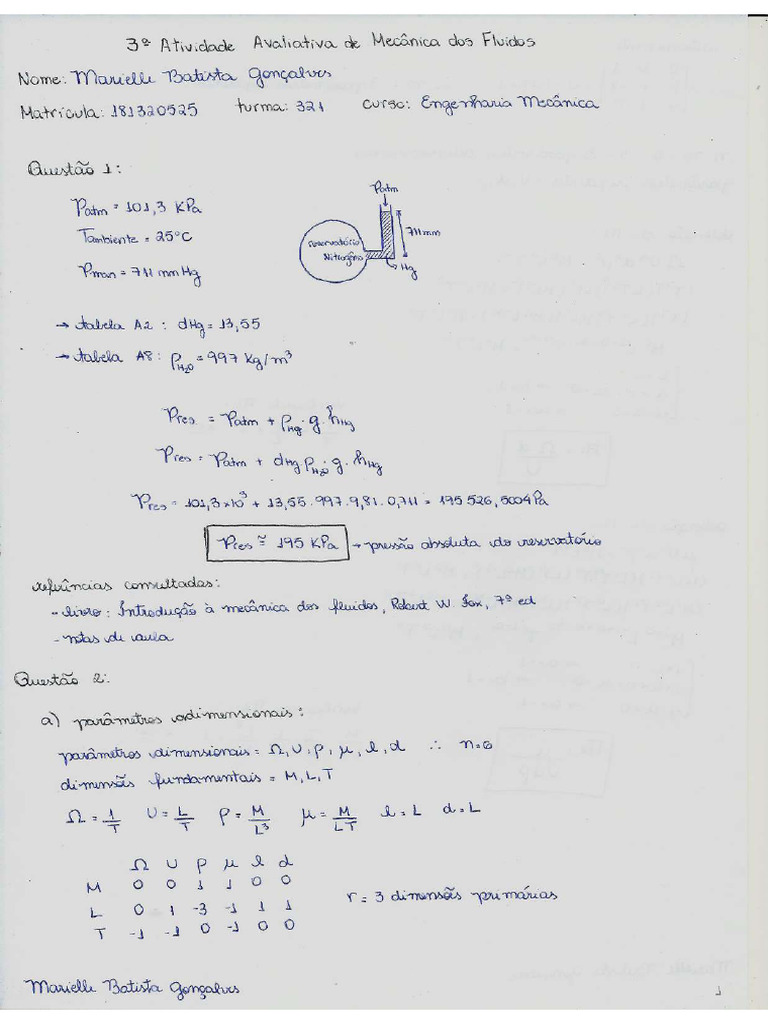 3ª Atividade Avaliativa de Mecânica dos Fluidos
Nome: Marielle Batista Gonçalves
Matrícula: 181320525 turma: 321 curso: Engenharia Mecânica
Questão 1:
Patm = 101,3 KPa
Tambiente = 25°C
Pman = 711 mmHg
Patm
711mm
reservatório
Nitrogênio
Hg
→ tabela A2: dHg = 13,55
→ tabela A8: ρH2O = 997 Kg/m³
Pres = Patm + ρHg · g · hHg
Pres = Patm + dHg ρH2O · g · hHg
Pres = 101,3×10³ + 13,55 · 997 · 9,81 · 0,711 = 195 526,5004 Pa
Pres ≅ 195 KPa → pressão absoluta do reservatório
referências consultadas:
- livro: Introdução à mecânica dos fluidos, Robert W. Fox, 7ª ed
- notas de aula
Questão 2:
a) parâmetros adimensionais:
parâmetros dimensionais = Ω, U, ρ, μ, l, d ∴ n=6
dimensões fundamentais = M, L, T
Ω = 1/T U = L/T ρ = M/L³ μ = M/LT l = L d = L
Ω U ρ μ l d
M 0 0 1 1 0 0
L 0 1 -3 -1 1 1
T -1 -1 0 -1 0 0
r = 3 dimensões primárias
Marielle Batista Gonçalves
1